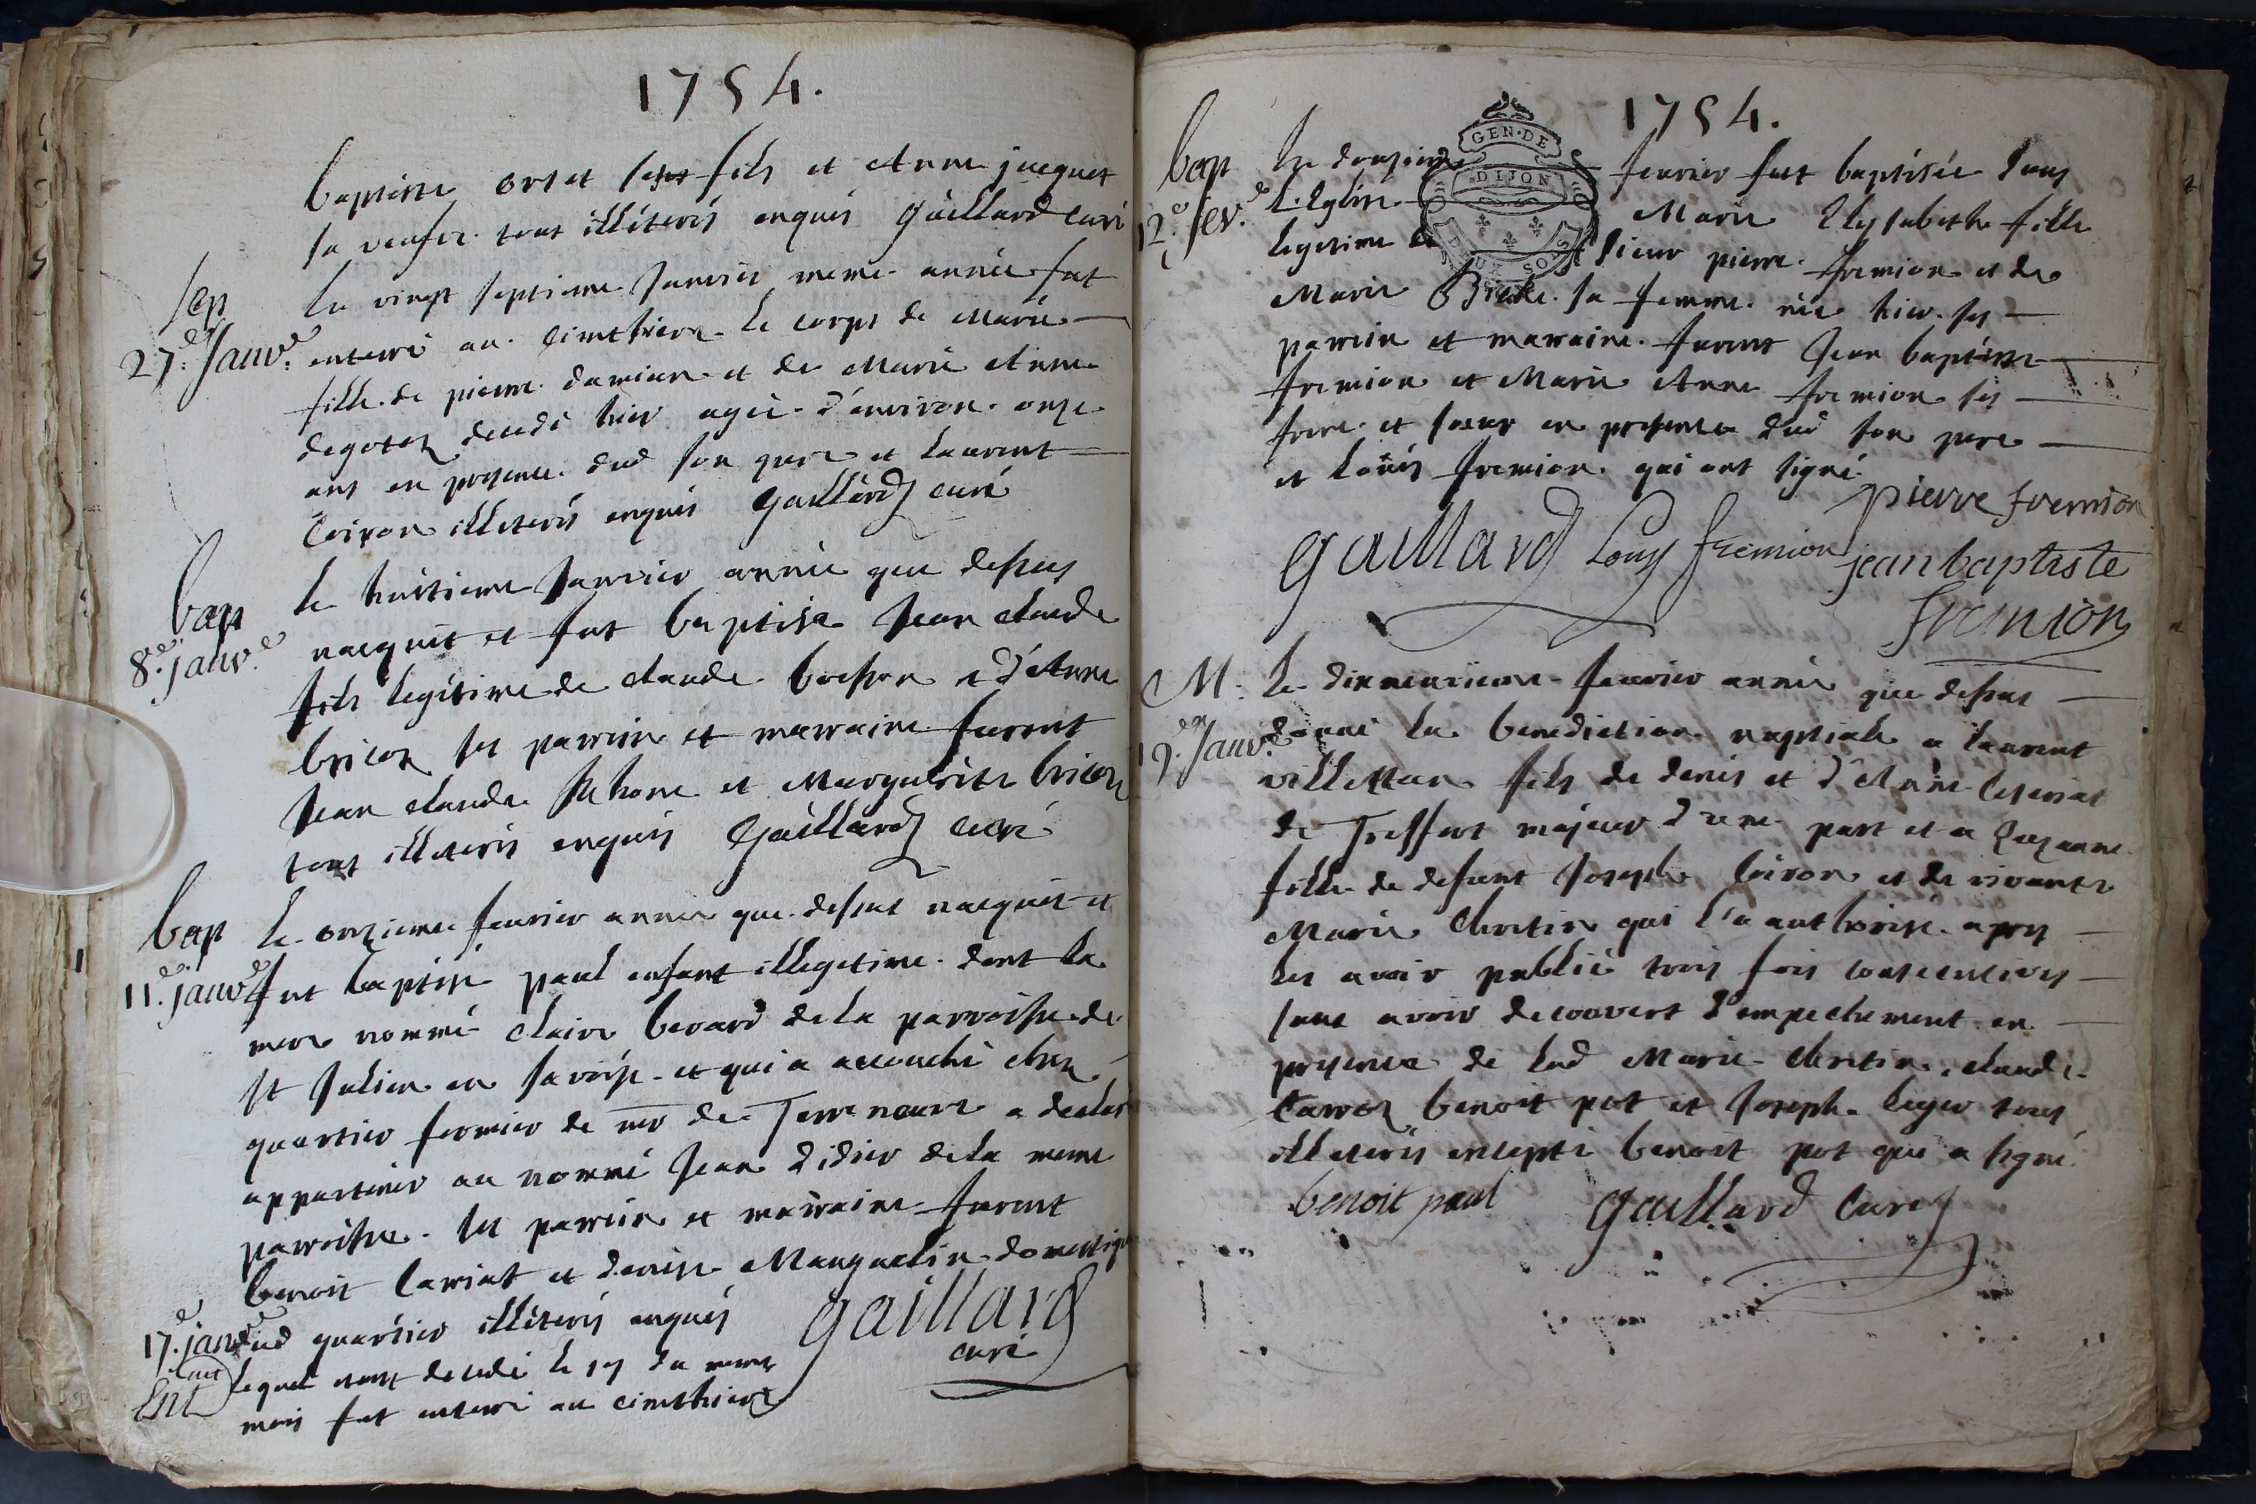 1754.
baptiste orset fils et Anne jacquet
sa veufve tous illéterés enquis Gaillard curé
sep
27.e Janv.e
le vingt septieme Janvier meme année fut
enterré au cimethiere le corps de Marie
fille de pierre damian et de Marie Anne
decedé hier agée d'environ onze
ans en presence dud son pere et Laurent
Coiron illeterés enquis Gaillard curé
bap
8.e janv.e
le huitieme Janvier année que dessus
nacquit et fut baptisé Jean claude
fils legitime de claude boesson et d'Anne
bricoz ses parrin et marraine furent
Jean claude et Marguerite bricoz
tous illeterés enquis Gaillard curé
bap
11.e janv.e
le onzieme fevrier année que dessus nacquit et
fut baptisé paul enfant illegetime dont la
mere nommé claire berard de la parroisse de
St Julien en savoye et qui a accouché chez
quartier fermier de mr de Terre neuve a declaré
appartenir au nommé Jean Didier de la meme
parroisse. ses parrin et marraine furent
benoit Cariat et denise Mauquelin domestique
dud quartier illéterés enquis
gaillard
curé
17.e janv.e
Ent
lequel etant decedé le 17 du meme
mois fut enterré au cimethiere
1754.
GEN. DE
DIJON
DEUX SOLS
bap
12.e fev.e
le douzieme fevrier fut baptisée dans
l'Eglise Marie Elysabethe fille
legetime de Sieur pierre fremion et de
Marie sa femme née hier ses
parrein et marraine furent Jean baptiste
fremion et Marie Anne fremion ses
frere et soeur en presence dud son pere
et Loüis fremion qui ont signé
pierre fremion
Gaillard Louy fremion jean baptiste
fremion
M.
19.e Janv.e
le dixneuvieme fevrier année que dessus
donné la benediction nuptiale a laurent
villettan fils de denis et d'Anne
de Treffort majeur d'une part et a Suzanne
fille de defunt Joseph Coiron et de vivante
Marie Chretin qui l'a authorisé apres
les avoir publié trois fois consecutives
sans avoir decouvert d'empechement en
presence de lad Marie Chretin, claude
Carroz benoit pot et Joseph leger tous
illeterés excepté benoit pot qui a signé.
benoit paul gaillard curé